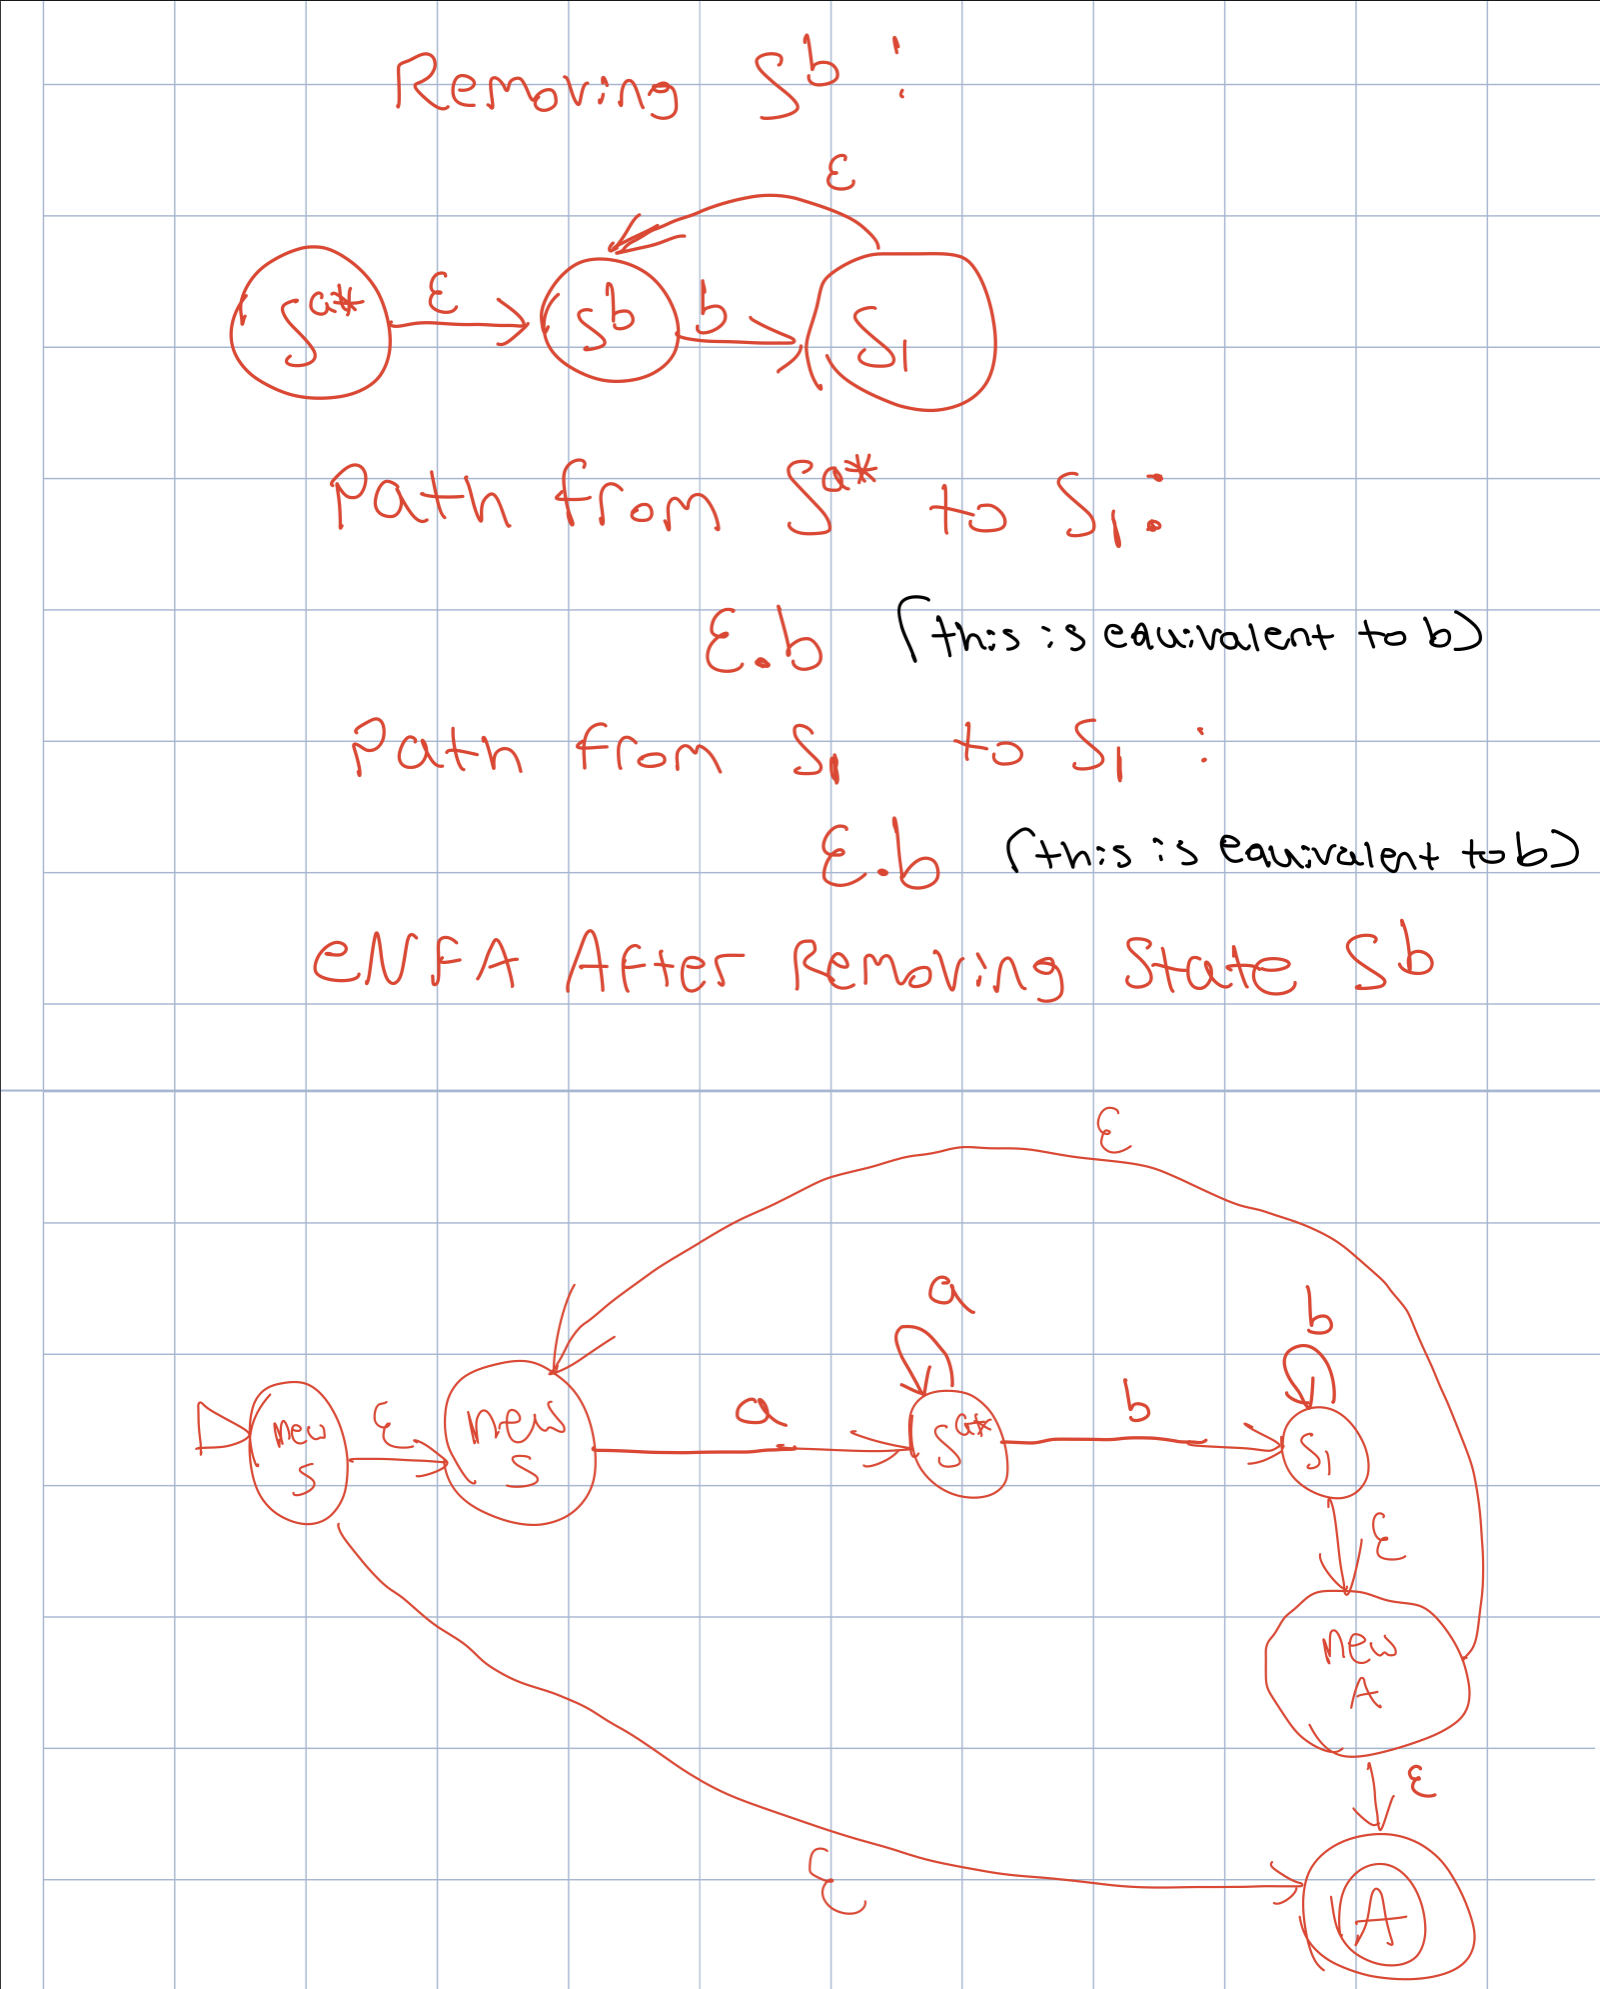 Removing S^b :
ε
S^a* ε S^b b S1
Path from S^a* to S1 :
ε.b (this is equivalent to b)
Path from S1 to S1 :
ε.b (this is equivalent to b)
eNFA After Removing State S^b
ε
a b
new S ε new S a S^a* b S1
ε
new A
ε
ε
A